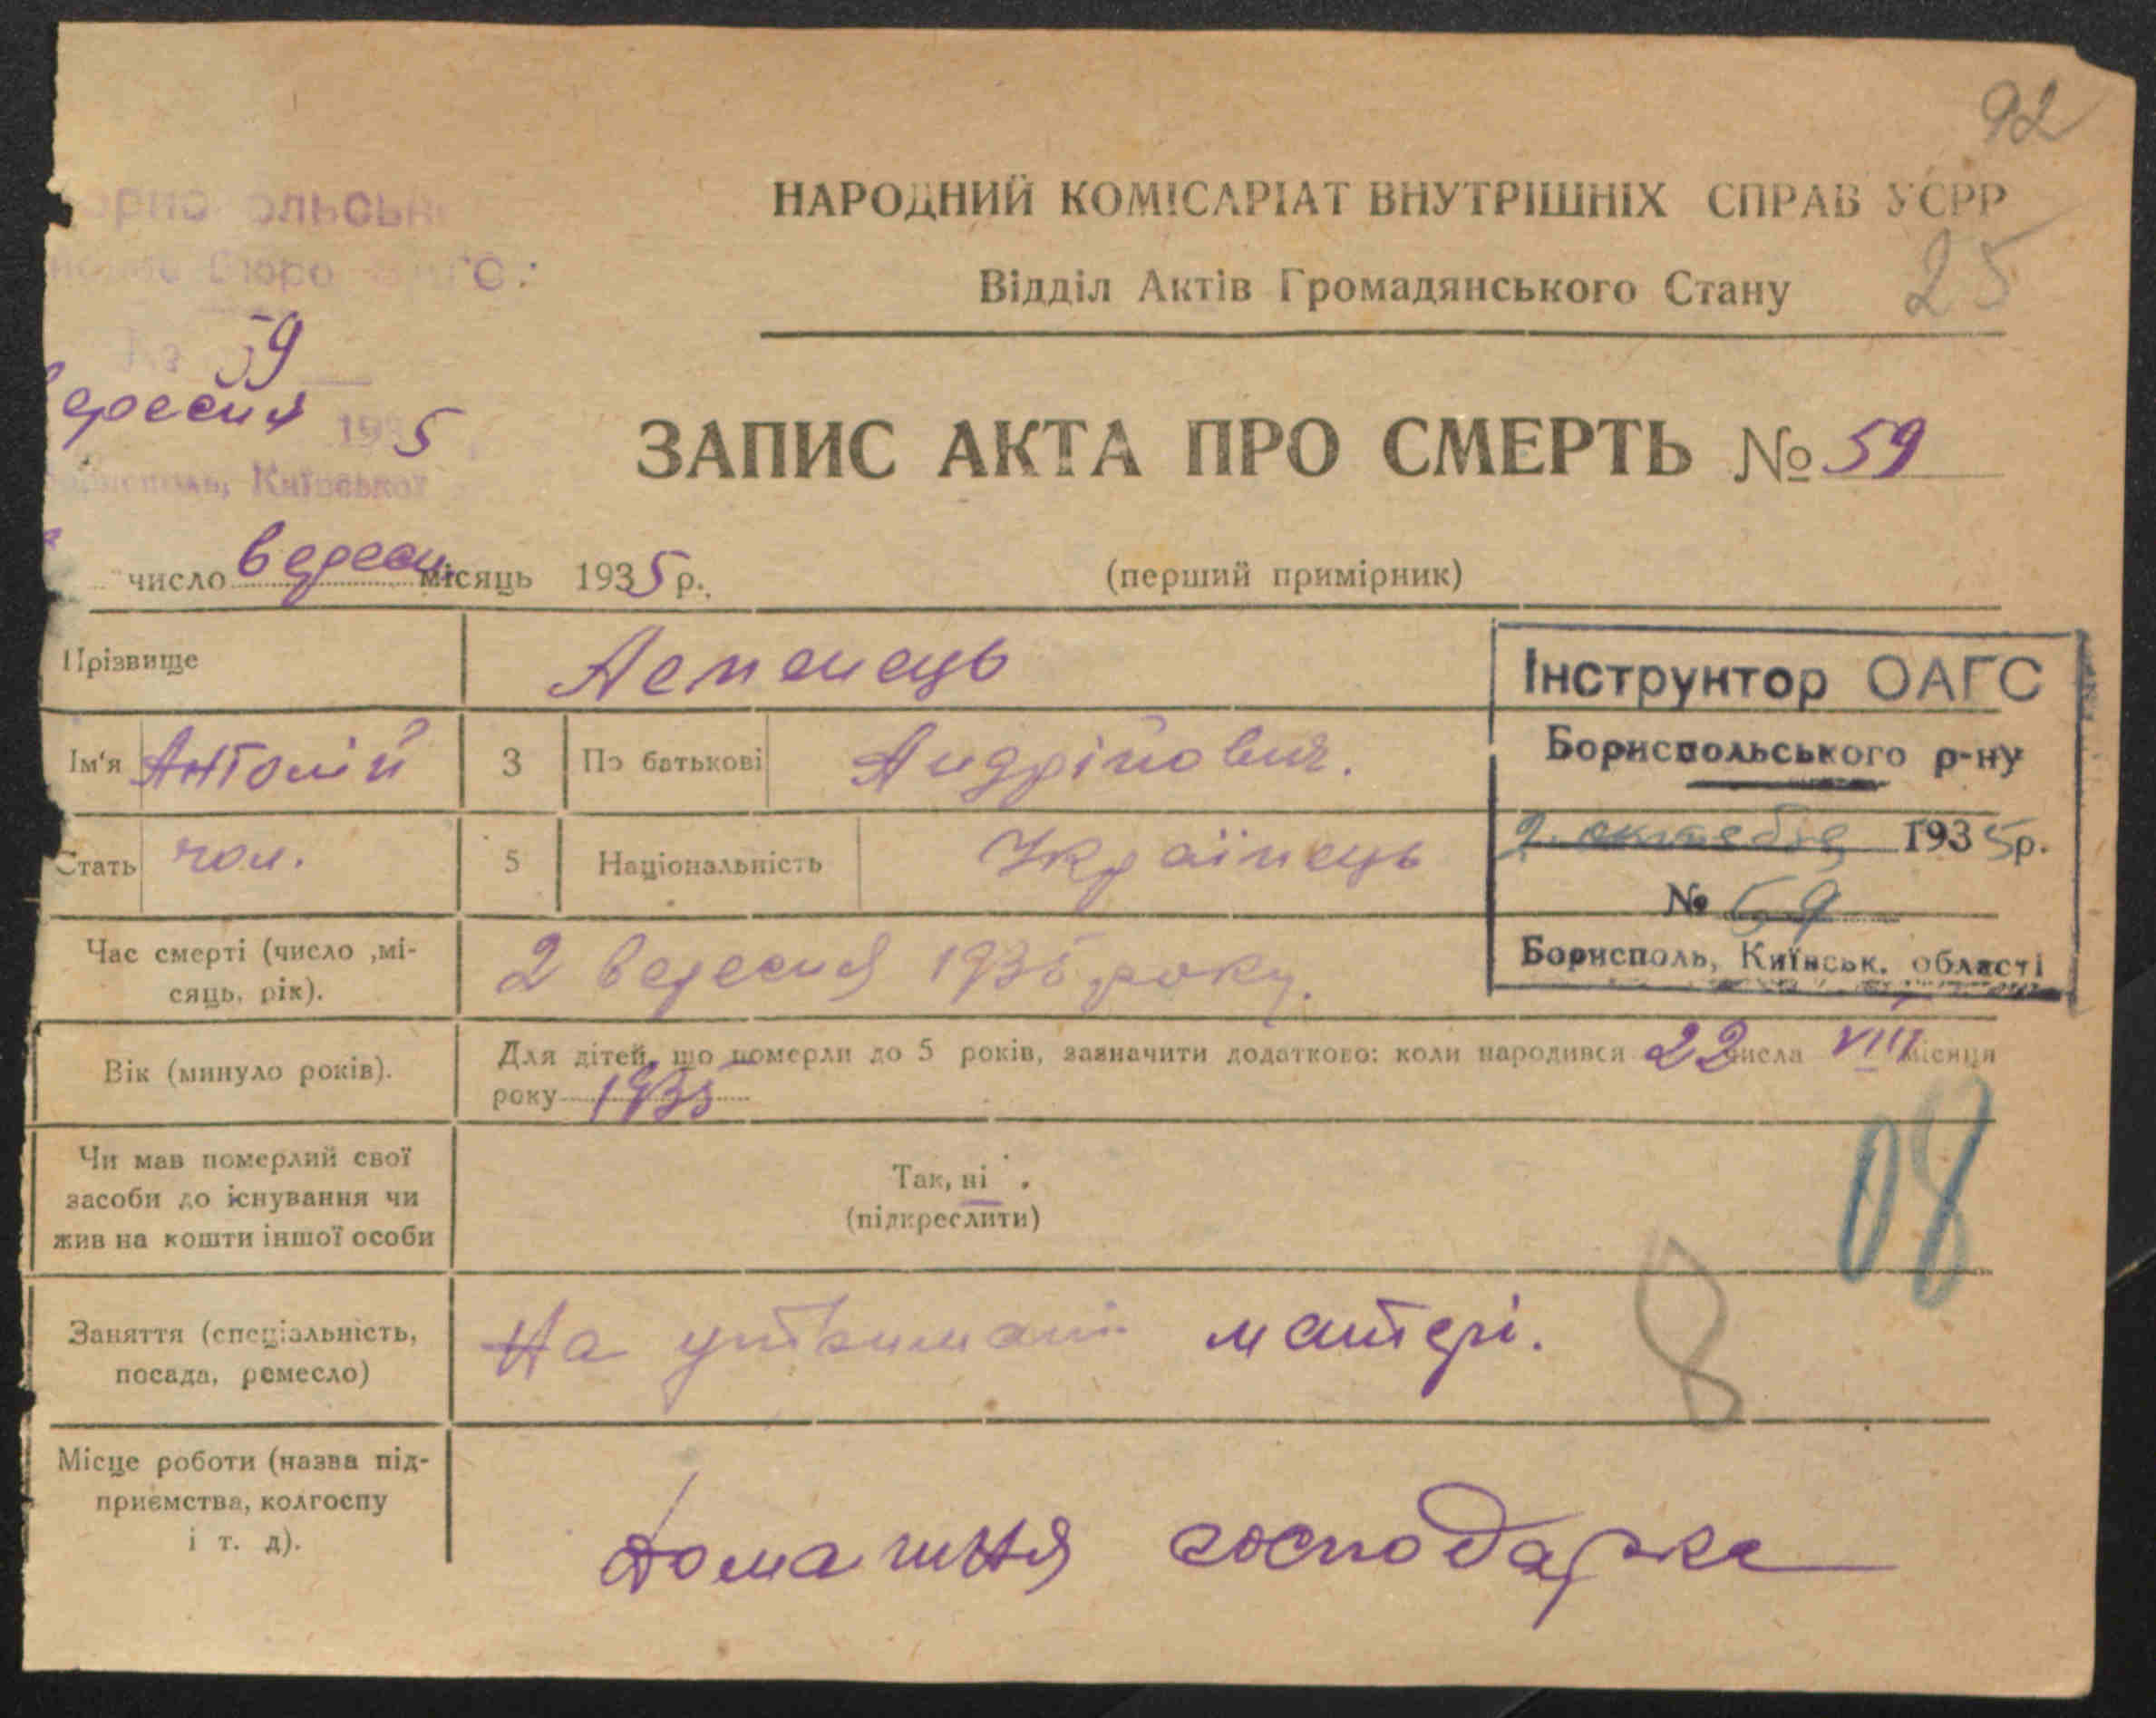 92
НАРОДНИЙ КОМІСАРІАТ ВНУТРІШНІХ СПРАВ УСРР
25
Відділ Актів Громадянського Стану
Бюро
59
1935
Київської
ЗАПИС АКТА ПРО СМЕРТЬ № 59
число вересн місяць 1935 р.
(перший примірник)
Прізвище
Інструктор ОАГС
Бориспольського р-ну
2 октября 1935р.
№ 59
Борисполь, Київськ. області
Ім'я Антоній 3 По батькові Андрійович.
Стать чол. 5 Національність Українець
Час смерті (число ,мі-
сяць, рік).
2 вересня 1935 року.
Вік (минуло років).
Для дітей, що померли до 5 років, зазначити додатково: коли народився 22 числа VIII місяця
року 1935
08
Чи мав померлий свої
засоби до існування чи
жив на кошти іншої особи
Так, ні .
(підкреслити)
Заняття (спеціальність,
посада, ремесло)
На утриманні матері.
8
Місце роботи (назва під-
приємства, колгоспу
і т. д).
Домашня господарка